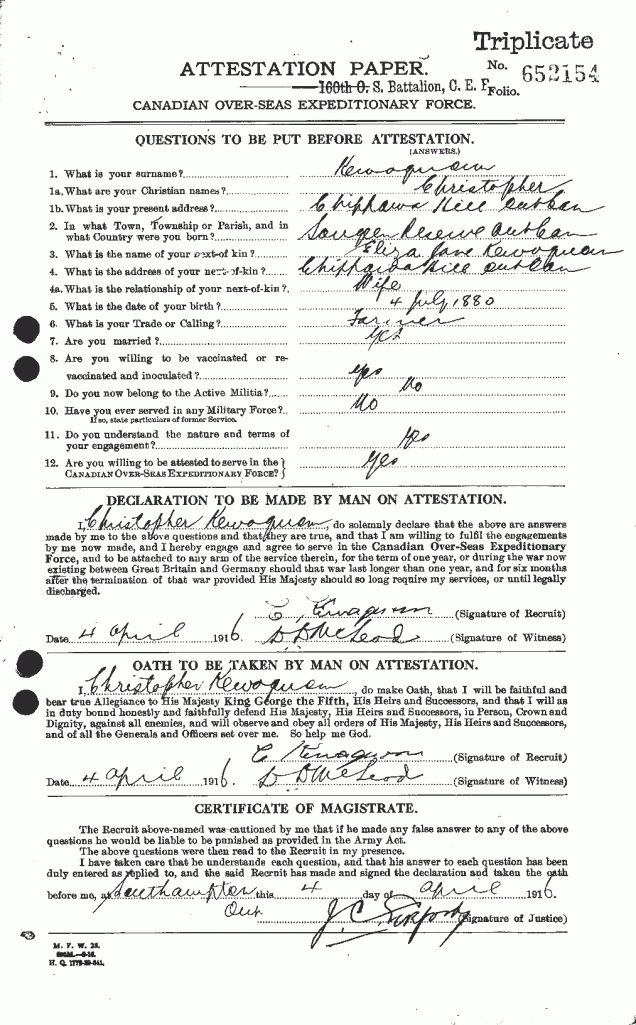 Triplicate
ATTESTATION PAPER. No. 652154
160th O. S. Battalion, C. E. F. Folio.
CANADIAN OVER-SEAS EXPEDITIONARY FORCE.
QUESTIONS TO BE PUT BEFORE ATTESTATION.
(ANSWERS.)
1. What is your surname? Kewaquom
1a. What are your Christian names? Christopher
1b. What is your present address? Chippawa Hill Ont Can
2. In what Town, Township or Parish, and in
what Country were you born? Saugeen Reserve Ont Can
3. What is the name of your next-of kin? Eliza Jane Kewaquom
4. What is the address of your next-of-kin? Chippawa Hill Ont Can
4a. What is the relationship of your next-of-kin? Wife
5. What is the date of your birth? 4 July 1880
6. What is your Trade or Calling? Farmer
7. Are you married? Yes
8. Are you willing to be vaccinated or re-
vaccinated and inoculated? Yes
9. Do you now belong to the Active Militia? No
10. Have you ever served in any Military Force? No
If so, state particulars of former Service.
11. Do you understand the nature and terms of
your engagement? Yes
12. Are you willing to be attested to serve in the
CANADIAN OVER-SEAS EXPEDITIONARY FORCE? Yes
DECLARATION TO BE MADE BY MAN ON ATTESTATION.
I, Christopher Kewaquom, do solemnly declare that the above are answers
made by me to the above questions and that they are true, and that I am willing to fulfil the engagements
by me now made, and I hereby engage and agree to serve in the Canadian Over-Seas Expeditionary
Force, and to be attached to any arm of the service therein, for the term of one year, or during the war now
existing between Great Britain and Germany should that war last longer than one year, and for six months
after the termination of that war provided His Majesty should so long require my services, or until legally
discharged.
C (Signature of Recruit)
Date 4 April 1916. D D McLeod (Signature of Witness)
OATH TO BE TAKEN BY MAN ON ATTESTATION.
I, Christopher Kewaquom, do make Oath, that I will be faithful and
bear true Allegiance to His Majesty King George the Fifth, His Heirs and Successors, and that I will as
in duty bound honestly and faithfully defend His Majesty, His Heirs and Successors, in Person, Crown and
Dignity, against all enemies, and will observe and obey all orders of His Majesty, His Heirs and Successors,
and of all the Generals and Officers set over me. So help me God.
C (Signature of Recruit)
Date 4 April 1916. D D McLeod (Signature of Witness)
CERTIFICATE OF MAGISTRATE.
The Recruit above-named was cautioned by me that if he made any false answer to any of the above
questions he would be liable to be punished as provided in the Army Act.
The above questions were then read to the Recruit in my presence.
I have taken care that he understands each question, and that his answer to each question has been
duly entered as replied to, and the said Recruit has made and signed the declaration and taken the oath
before me, at Southampton this 4 day of April 1916.
Ont J C (Signature of Justice)
M. F. W. 23.
H. Q. 1772-39-841.